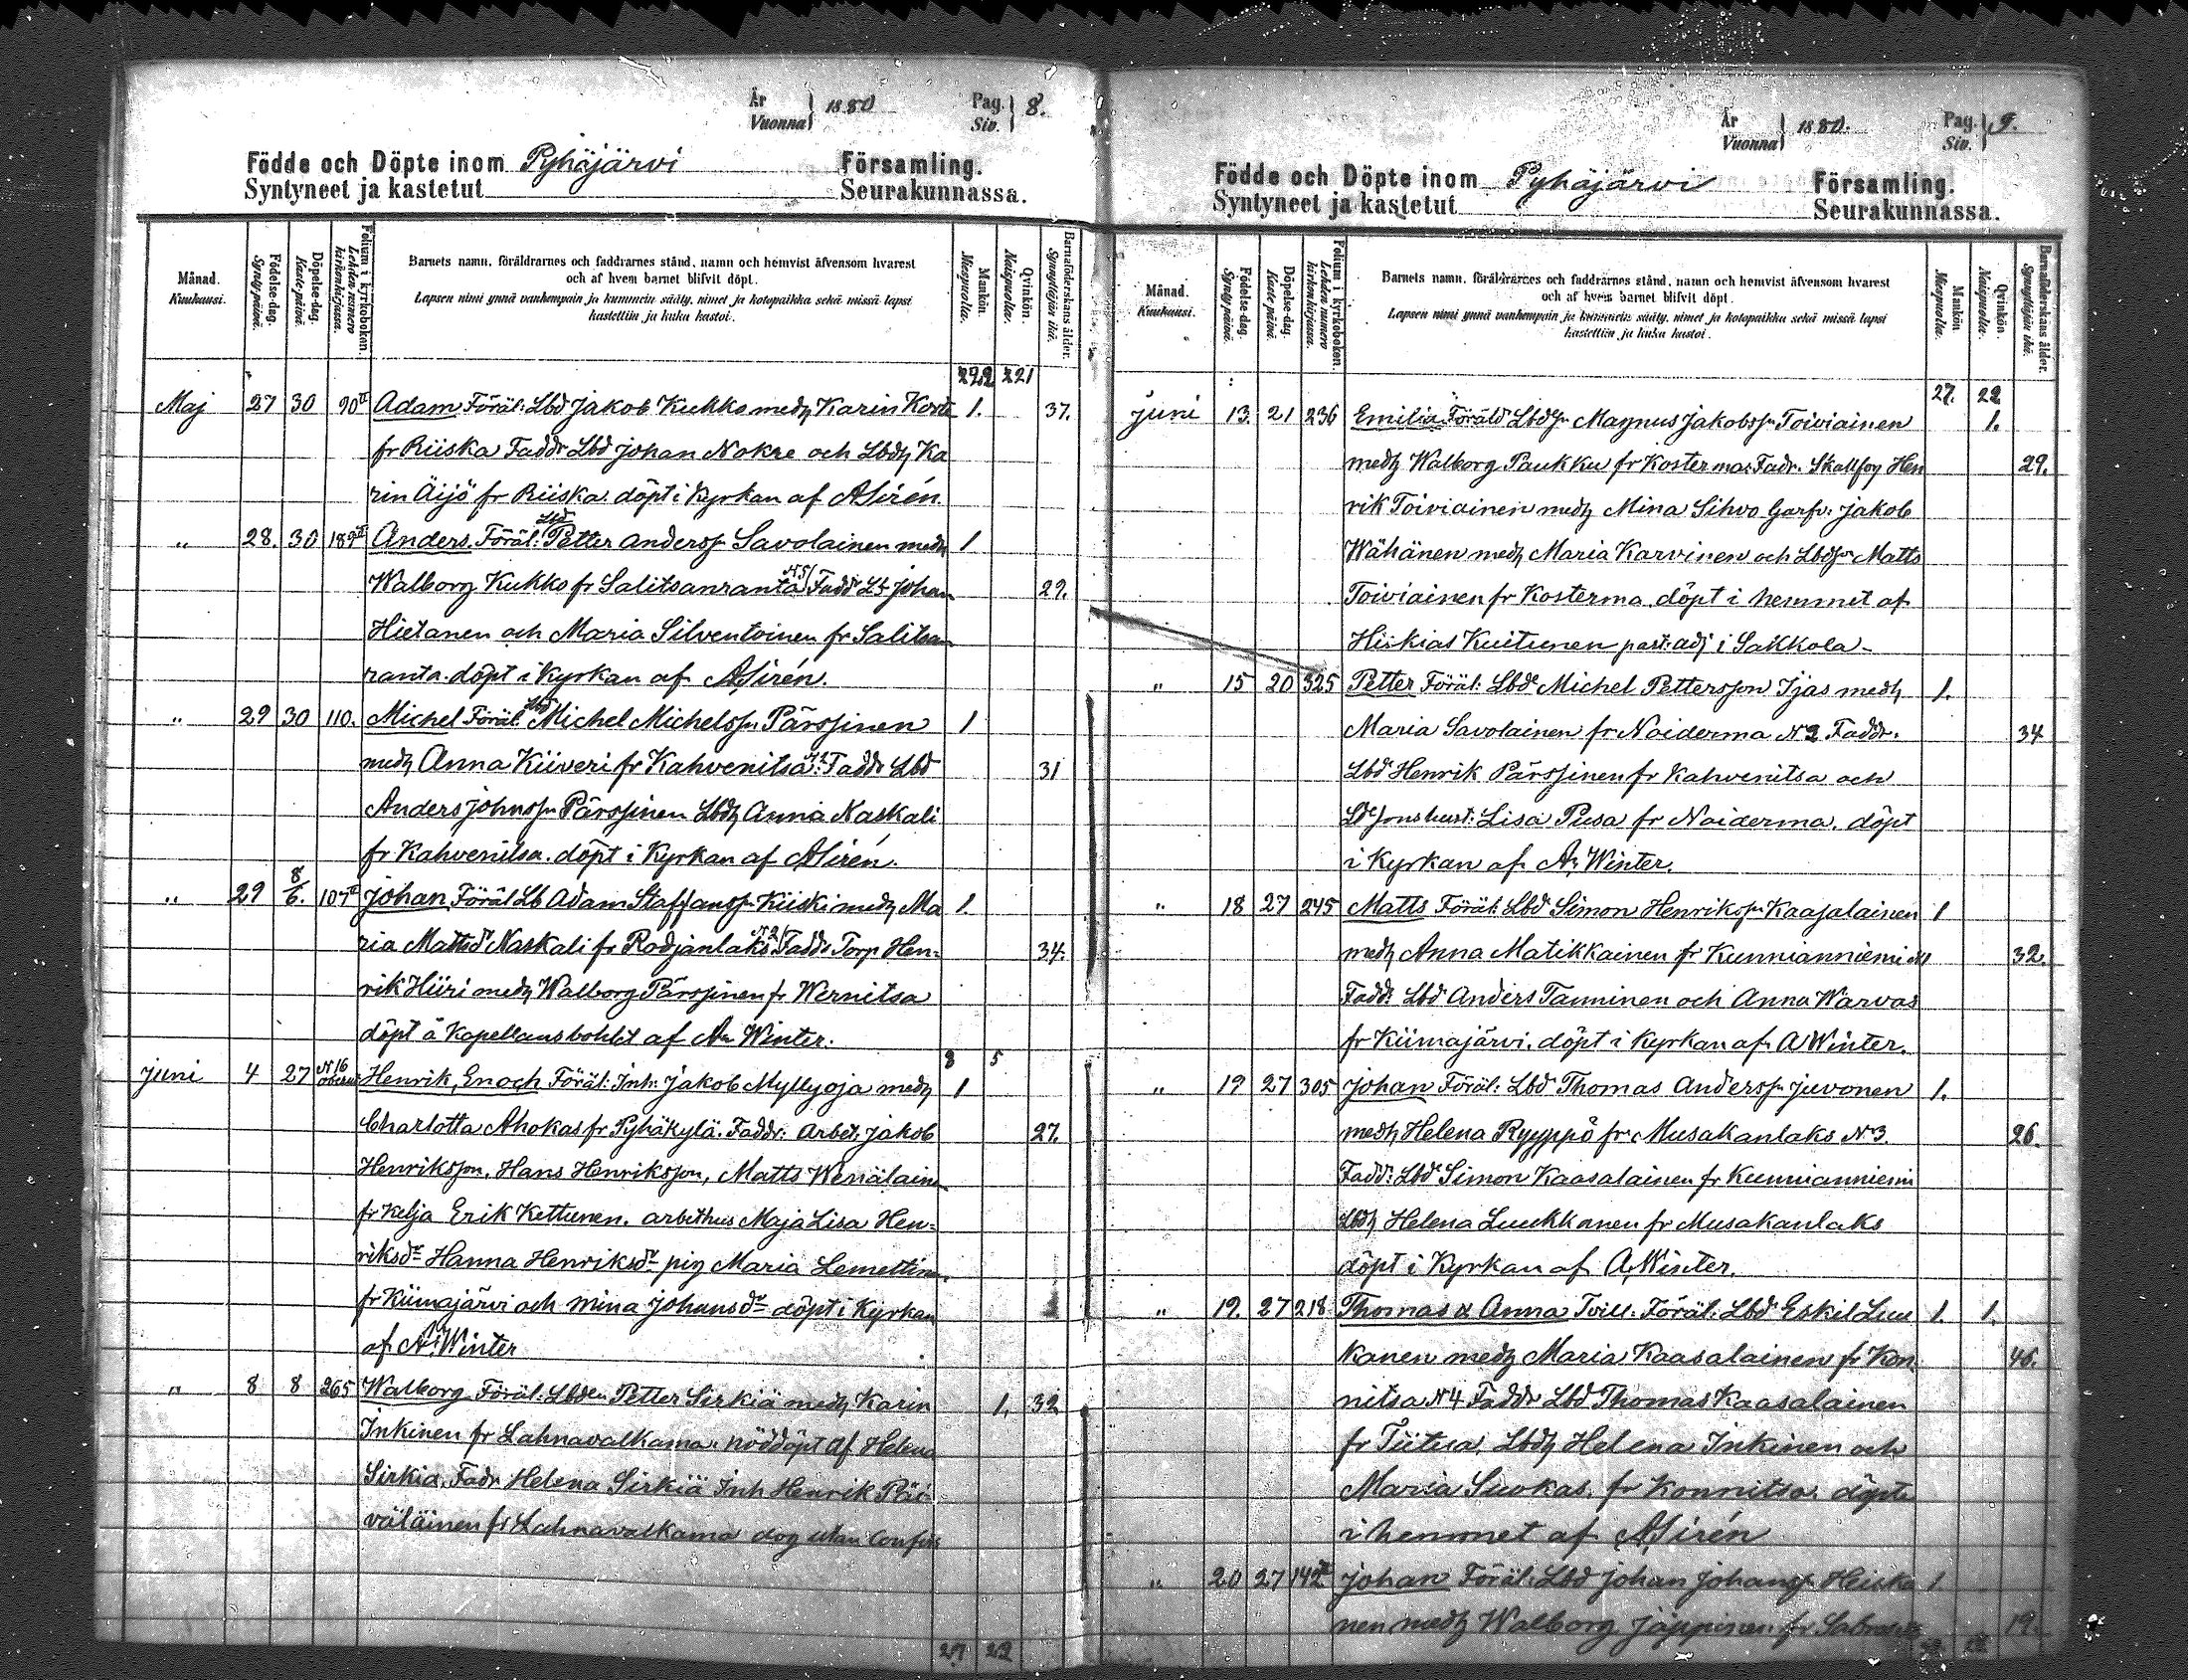 År Vuonna } 1880 Pag. Siv. } 8.
Födde och Döpte inom Pyhäjärvi Församling.
Syntyneet ja kastetut Seurakunnassa.
Månad. Kuukausi.
Födelse-dag. Synty-päivä.
Döpelse-dag. Kaste-päivä.
Folium i kyrkoboken. Lehden numero kirkonkirjassa.
Barnets namn, föräldrarnes och faddrarnes stånd, namn och hemvist äfvensom hvarest
och af hvem barnet blifvit döpt.
Lapsen nimi ynnä vanhempain ja kummein sääty, nimet ja kotopaikka sekä missä lapsi
kastettiin ja kuka kastoi.
Mankön. Miespuolia.
Qvinkön. Naispuolia.
Barnaföderskans ålder. Synnyttäjän ikä.
222 221
Maj 27 30 90 II Adam Föräl: Lbd Jakob Kukko medh Karin Korte 1. 37.
fr Riiska Faddr Lbd Johan Nokre och Lbdh Ka
rin Äijö fr Riiska. döpt i Kyrkan af ASirén.
" 28. 30 189 II Anders. Föräl: Lbd Petter Anderss:n Savolainen medh 1
Walborg Kukko fr Salitsanranta N51 Faddr Lb Johan 29.
Hietanen och Maria Silventoinen fr Salitsan
ranta. döpt i Kyrkan af ASirén.
" 29 30 110. Michel Föräl: Lbd Michel Michelss:n Pärssinen 1
medh Anna Kiiveri fr Kahvenitsa Faddr Lbd 31
Anders Johnss:n Pärssinen Lbdh Anna Naskali
fr Kahvenitsa. döpt i Kyrkan af ASirén.
" 29 8/6. 107 II Johan Föräl Lb Adam Staffanss:n Kiiski medh Ma 1.
ria Mattsdr Naskali fr Rodjanlaks N2/ Faddr Torp Hen= 34.
rik Hiiri medh Walborg Pärssinen fr Wernitsa
döpt å Kapellansbohlet af An Winter.
8 5
Juni 4 27 N 16 Henrik, Enoch Föräl: Inh: Jakob Myllyoja medh 1
Charlotta Ahokas fr Pyhäkylä. Faddr: Arbet. Jakob 27.
Henriksson, Hans Henriksson, Matts Wenälainen
fr Kelja Erik Kettunen. arbethus Maja Lisa Hen=
riksdr Hanna Henriksdr pig Maria Lemettinen
fr Kiimajärvi och Mina Johansdr döpt i Kyrkan
af A. Winter
" 8 8 265 Walborg Föräl: Lbden Petter Sirkiä medh Karin 1. 32
Inkinen fr Lahnavalkama. nöddöpt af Helena
Sirkiä, Fadr Helena Sirkiä Inh Henrik Päi
väläinen fr Lahnavalkama dog utan confirm
27 22
År Vuonna } 1880. Pag. Siv. } 9.
Födde och Döpte inom Pyhäjärvi Församling.
Syntyneet ja kastetut Seurakunnassa.
Månad. Kuukausi.
Födelse-dag. Synty-päivä.
Döpelse-dag. Kaste-päivä.
Folium i kyrkoboken. Lehden numero kirkonkirjassa.
Barnets namn, föräldrarnes och faddrarnes stånd, namn och hemvist äfvensom hvarest
och af hvem barnet blifvit döpt.
Lapsen nimi ynnä vanhempain ja kummein sääty, nimet ja kotopaikka sekä missä lapsi
kastettiin ja kuka kastoi.
Mankön. Miespuolia.
Qvinkön. Naispuolia.
Barnaföderskans ålder. Synnyttäjän ikä.
27. 22
Juni 13. 21 236 Emilia Föräld Lbdss:n Magnus Jakobss:n Toiviainen 1.
medh Walborg Paukku fr Kosterma Fadr. Skallfog Hen 29.
rik Toiviainen medh Mina Sihvo Garfv: Jakob
Wähänen medh Maria Karvinen och Lbdss:n Matts
Toiviainen fr Kosterma. döpt i hemmet af
Hiskias Kuitunen past: adj i Sakkola-
" 15 20 325 Petter Föräl: Lbd Michel Pettersson Ijas medh 1.
Maria Savolainen fr Noiderma N2 Faddr. 34
Lbd Henrik Pärssinen fr Kahvenitsa och
Lbdsonshust: Lisa Pusa fr Noiderma. döpt
i Kyrkan af A. Winter.
" 18 27 245 Matts Föräl: Lbd Simon Henrikss:n Kaasalainen 1
medh Anna Matikkainen fr Kunnianniemi N1 32.
Fadd: Lbd Anders Tanninen och Anna Warvas
fr Kiimajärvi. döpt i Kyrkan af A Winter.
" 19 27 305 Johan Föräl: Lbd Thomas Anderss:n Juvonen 1.
medh Helena Ryyppö fr Musakanlaks N3. 26.
Fadd: Lbd Simon Kaasalainen fr Kunnianniemi
Lbdh Helena Luukkanen fr Musakanlaks
döpt i Kyrkan af A. Winter.
" 19. 27 218 Thomas & Anna Tvill: Föräl: Lbd Eskil Luu 1. 1.
kanen medh Maria Kaasalainen fr Kon 46.
nitsa N4 Faddr Lbd Thomas Kaasalainen
fr Tiitua, Lbdh Helena Inkinen och
Maria Suokas. fr Konnitsa. döpte
i hemmet af ASirén
" 20 27 142 II Johan Föräl: Lbd Johan Johanss:n Heiska 1
nen medh Walborg Jäppinen fr 19.